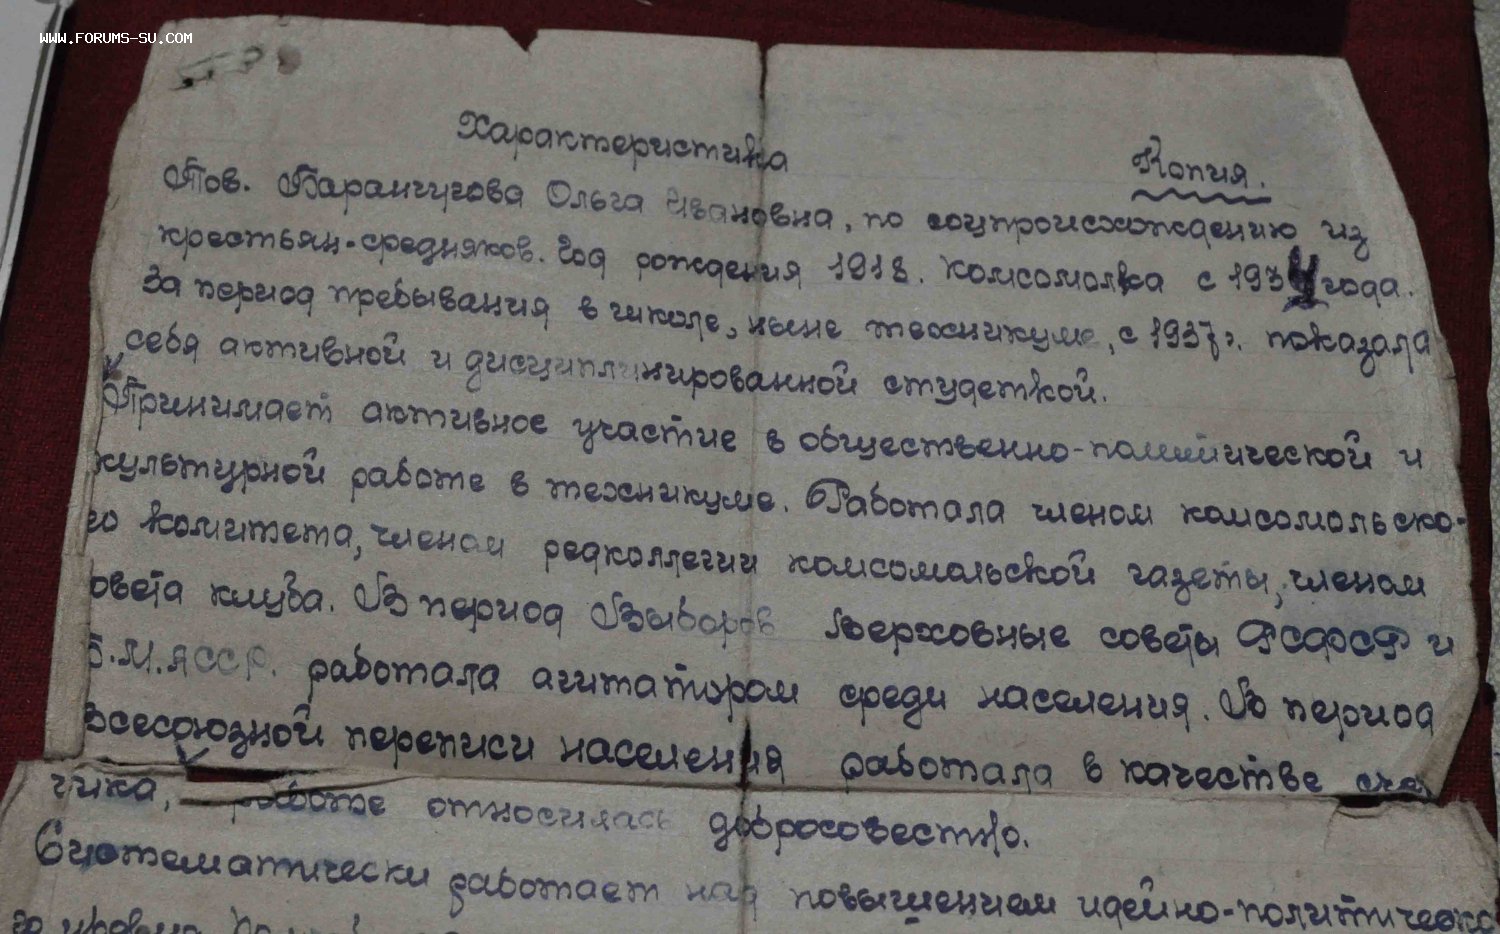 WWW.FORUMS-SU.COM
Характеристика
Копия.
Тов. Баранчугова Ольга Ивановна, по соцпроисхождению из
крестьян-средняков. Год рождения 1918. Комсомолка с 1934 года.
За период пребывания в школе, ныне техникуме, с 1937г. показала
себя активной и дисциплинированной студеткой.
Принимает активное участие в общественно-политической и
культурной работе в техникуме. Работала членом комсомольско-
го комитета, членом редколлегии комсомольской газеты, членом
совета клуба. В период Выборов Верховные советы РСФСР и
Б.М.АССР. работала агитатором среди населения. В период
Всесоюзной переписи населения работала в качестве счет
чика, работе относилась добросовестно.
Систематически работает над повышением идейно-политическо
го уровня